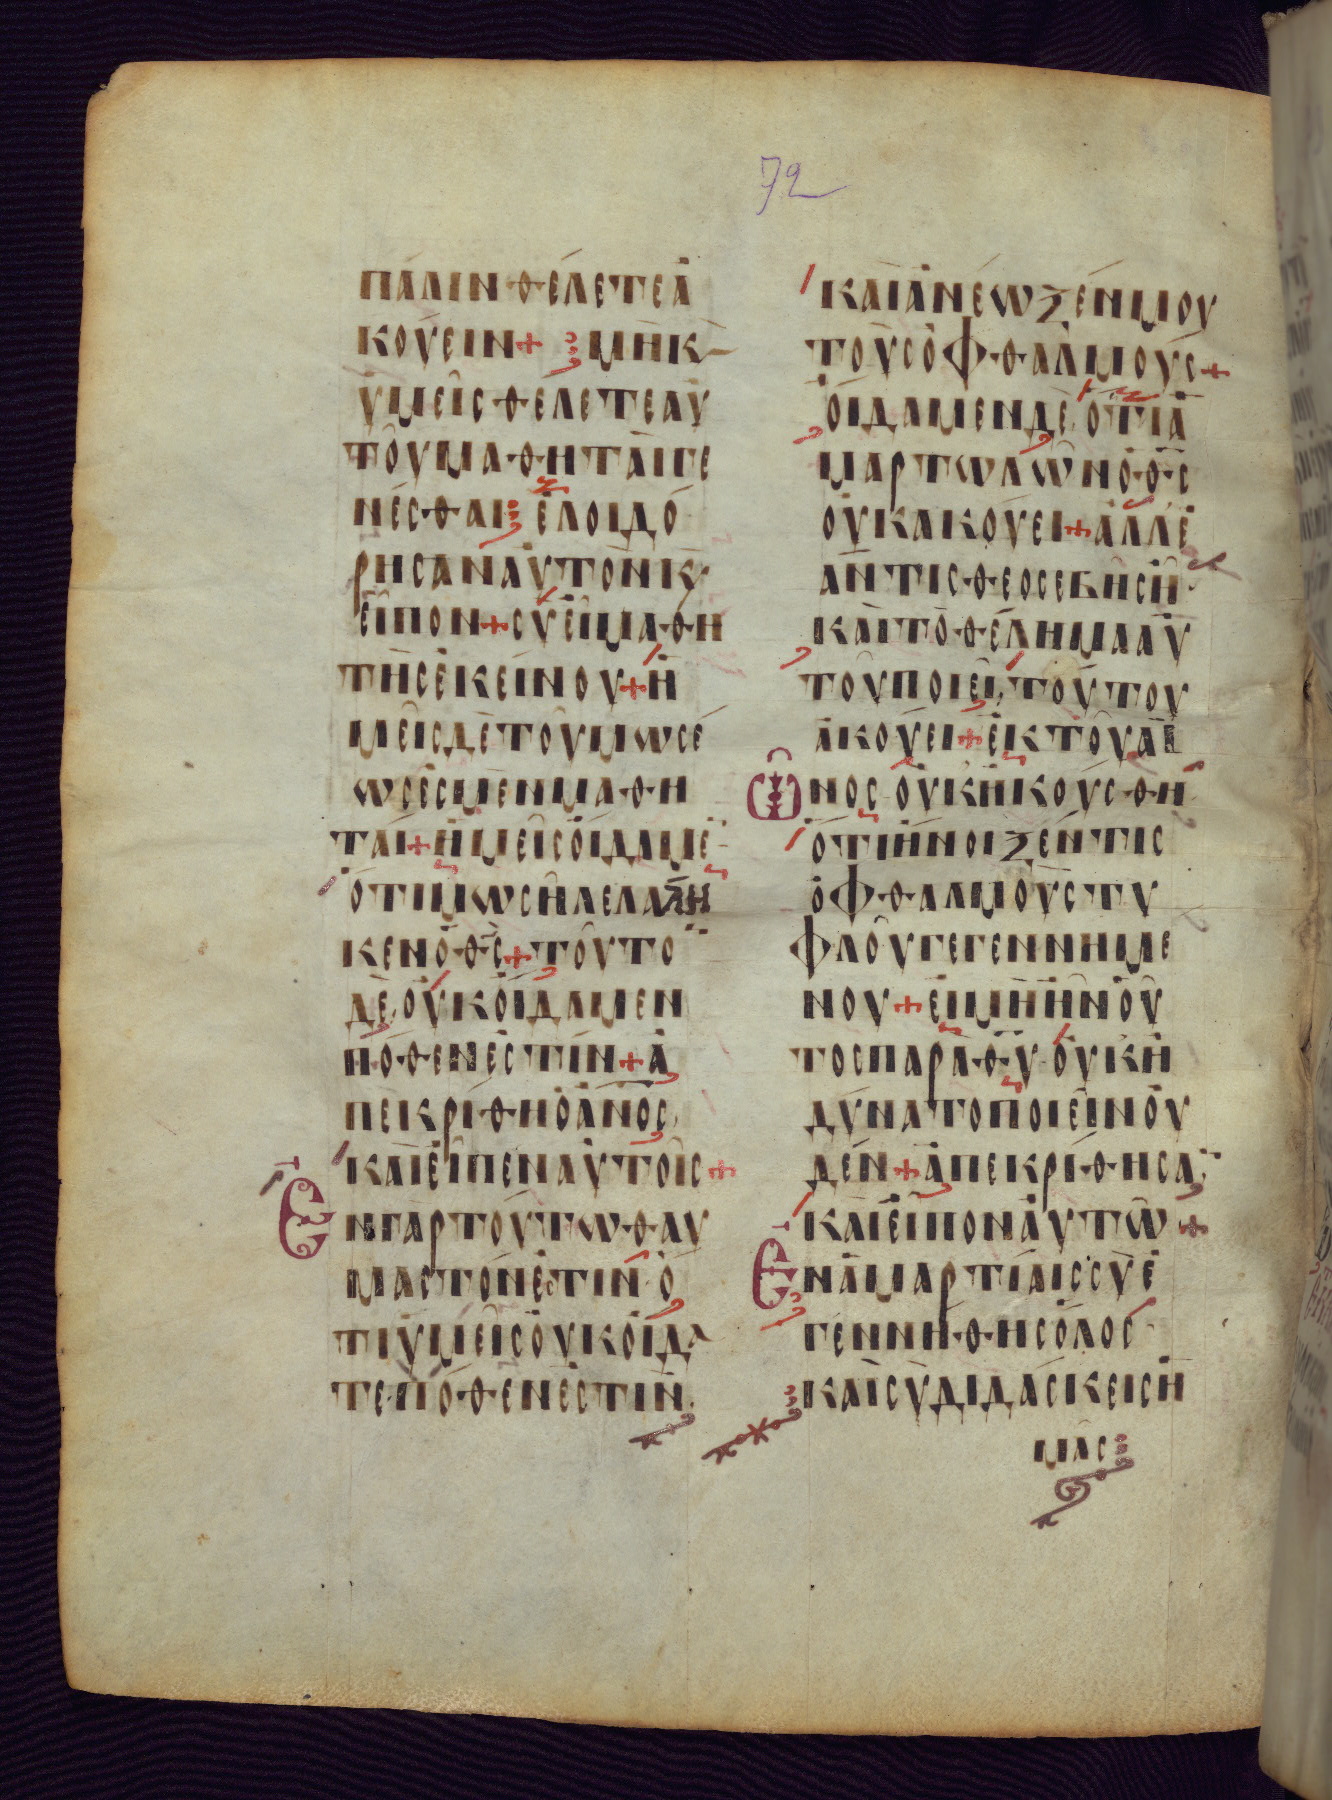 72
ΠΑΛΙΝΘΕΛΕΤΕΑ
ΚΟΥΕΙΝ+ ΜΗΚ
ΥΜΕΙСΘΕΛΕΤΕΑΥ
ΤΟΥΜΑΘΗΤΑΙΓΕ
ΝΕСΘΑΙ ΕΛΟΙΔΟ
ΡΗСΑΝΑΥΤΟΝΚ
ΕΙΠΟΝ+СΥΕΙΜΑΘΗ
ΤΗСΕΚΕΙΝΟΥ+Η
ΜΕΙСΔΕΤΟΥΜΩСΕ
ΩСΕСΜΕΝΜΑΘΗ
ΤΑΙ+ΗΜΕΙСΟΙΔΑΜΕ
ΟΤΙΜΩСΗΛΕΛΑΛΗ
ΚΕΝΟΘС+ΤΟΥΤΟ
ΔΕ,ΟΥΚΟΙΔΑΜΕΝ
ΠΟΘΕΝΕСΤΙΝ+Α
ΠΕΚΡΙΘΗΟΑΝΟС,
ΚΑΙΕΙΠΕΝΑΥΤΟΙС+
ΕΝΓΑΡΤΟΥΤΩΘΑΥ
ΜΑСΤΟΝΕСΤΙΝ·Ο
ΤΙΥΜΕΙСΟΥΚΟΙΔΑ
ΤΕΠΟΘΕΝΕСΤΙΝ.
ΚΑΙΑΝΕΩΞΕΝΜΟΥ
ΤΟΥСΟΦΘΑΛΜΟΥС+
ΟΙΔΑΜΕΝΔΕ,ΟΤΙΑ
ΜΑΡΤΩΛΩΝΟΘС
ΟΥΚΑΚΟΥΕΙ+ΑΛΛΕ
ΑΝΤΙСΘΕΟСΕΒΗСΗ
ΚΑΙΤΟΘΕΛΗΜΑΑΥ
ΤΟΥΠΟΙΕΙ,ΤΟΥΤΟΥ
ΑΚΟΥΕΙ+ΕΚΤΟΥΑΙ
ΩΝΟС·ΟΥΚΗΚΟΥСΘΗ
ΟΤΙΗΝΟΙΞΕΝΤΙС
ΟΦΘΑΛΜΟΥСΤΥ
ΦΛΟΥΓΕΓΕΝΝΗΜΕ
ΝΟΥ+ΕΙΜΗΗΝΟΥ
ΤΟСΠΑΡΑΘΥ·ΟΥΚΗ
ΔΥΝΑΤΟΠΟΙΕΙΝΟΥ
ΔΕΝ+ΑΠΕΚΡΙΘΗСΑ
ΚΑΙΕΙΠΟΝΑΥΤΩ+
ΕΝΑΜΑΡΤΙΑΙССΥΕ
ΓΕΝΝΗΘΗСΟΛΟС
ΚΑΙСΥΔΙΔΑСΚΕΙСΗ
ΜΑС